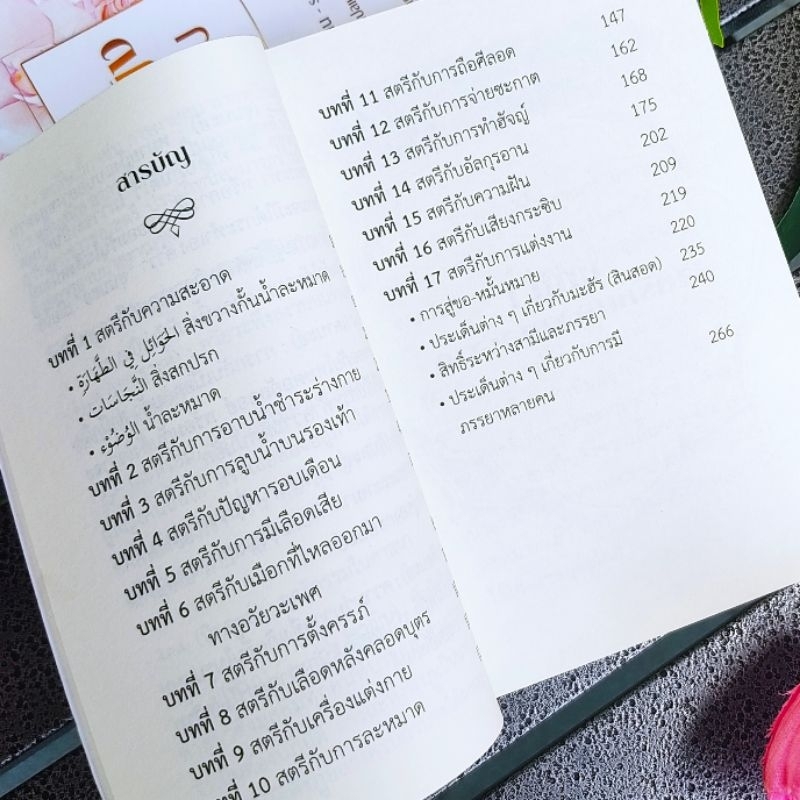 สารบัญ
บทที่ 1 สตรีกับความสะอาด
• الحَوَائِلُ فِي الطَّهَارَةِ สิ่งขวางกั้นน้ำละหมาด
• النَّجَاسَات สิ่งสกปรก
• الوُضُوْء น้ำละหมาด
บทที่ 2 สตรีกับการอาบน้ำชำระร่างกาย
บทที่ 3 สตรีกับการลูบน้ำบนรองเท้า
บทที่ 4 สตรีกับปัญหารอบเดือน
บทที่ 5 สตรีกับการมีเลือดเสีย
บทที่ 6 สตรีกับเมือกที่ไหลออกมา
ทางอวัยวะเพศ
บทที่ 7 สตรีกับการตั้งครรภ์
บทที่ 8 สตรีกับเลือดหลังคลอดบุตร
บทที่ 9 สตรีกับเครื่องแต่งกาย
บทที่ 10 สตรีกับการละหมาด
บทที่ 11 สตรีกับการถือศีลอด 147
บทที่ 12 สตรีกับการจ่ายซะกาต 162
บทที่ 13 สตรีกับการทำฮัจญ์ 168
บทที่ 14 สตรีกับอัลกุรอาน 175
บทที่ 15 สตรีกับความฝัน 202
บทที่ 16 สตรีกับเสียงกระซิบ 209
บทที่ 17 สตรีกับการแต่งงาน 219
• การสู่ขอ-หมั้นหมาย 220
• ประเด็นต่าง ๆ เกี่ยวกับมะฮัร (สินสอด) 235
• สิทธิ์ระหว่างสามีและภรรยา 240
• ประเด็นต่าง ๆ เกี่ยวกับการมี 266
ภรรยาหลายคน